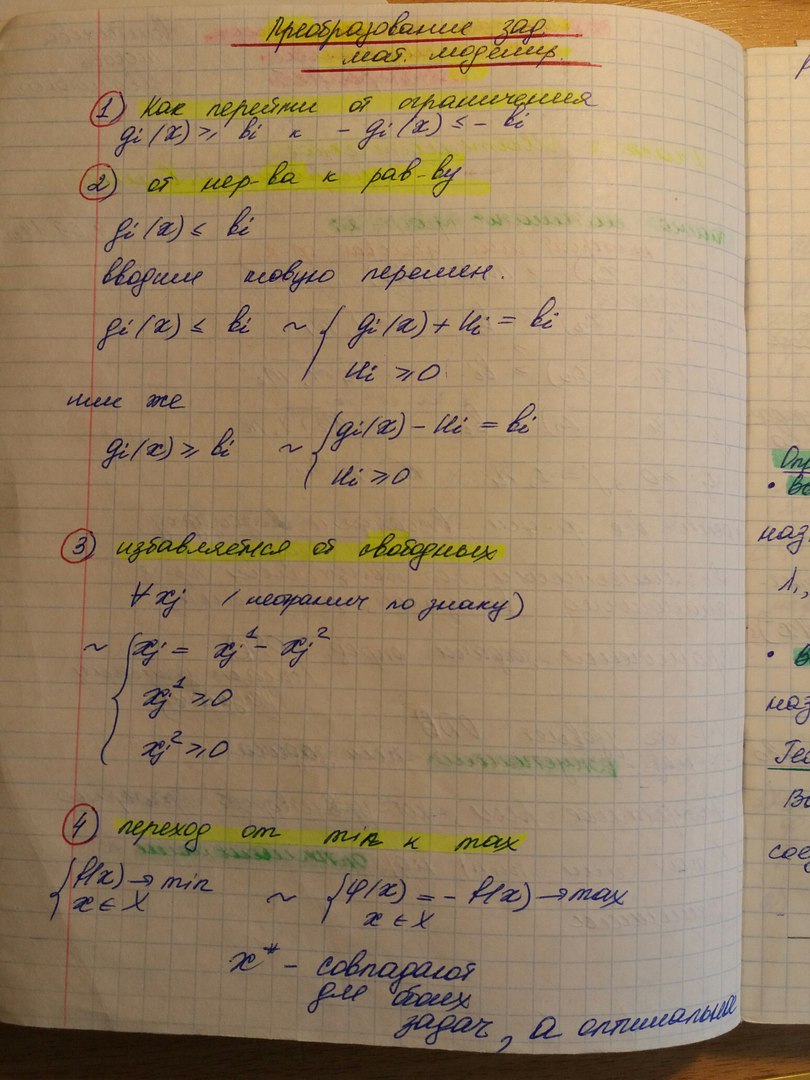 Преобразование зад.
мат. моделир.
1) Как перейти от ограничения
gi(x) ≥ bi к - gi(x) ≤ - bi
2) от нер-ва к рав-ву
gi(x) ≤ bi
вводим новую перемен.
gi(x) ≤ bi ~ { gi(x) + Ui = bi
Ui ≥ 0
или же
gi(x) ≥ bi ~ { gi(x) - Ui = bi
Ui ≥ 0
Опр
• Ва
3) избавляется от свободных
наз.
∀ xj (неогранич по знаку)
λ1,
~ { xj = xj¹ - xj²
• В
xj¹ ≥ 0
наз
xj² ≥ 0
Тео
4) переход от min к max
Во
соед
{ f(x) → min ~ { φ(x) = - f(x) → max
x ∈ X x ∈ X
x* - совпадают
для обоих
задач, а оптимальное